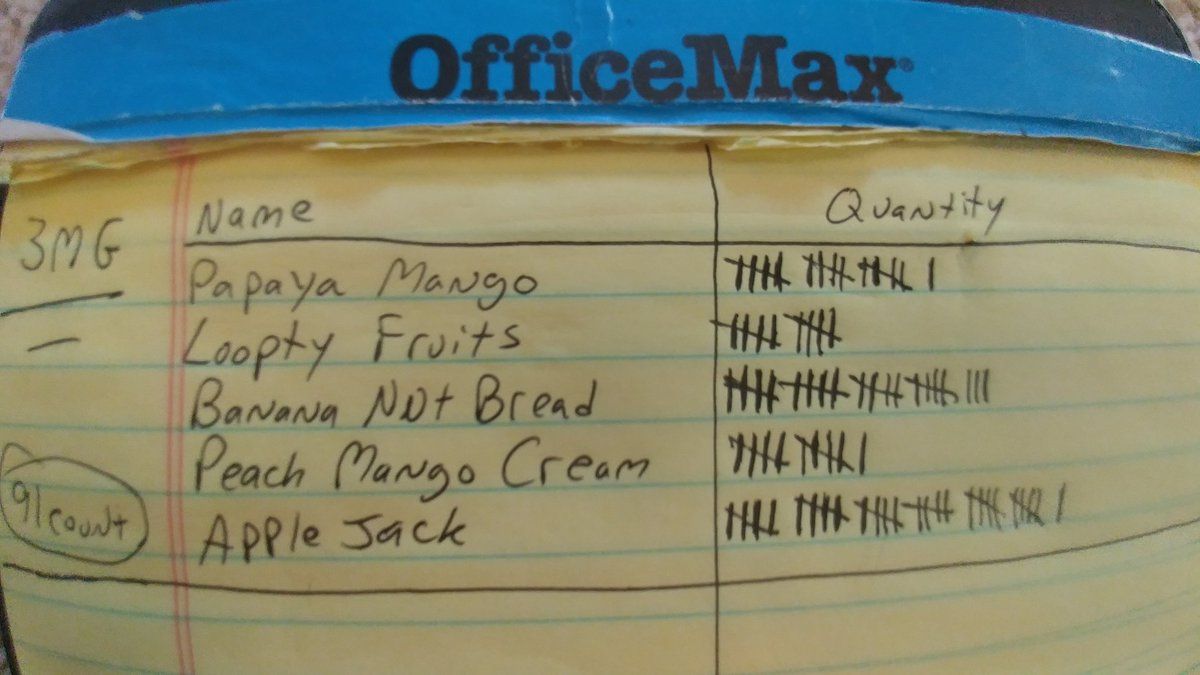 OfficeMax
3MG
Name Quantity
Papaya Mango
Loopty Fruits
Banana Nut Bread
Peach Mango Cream
91 count
Apple Jack